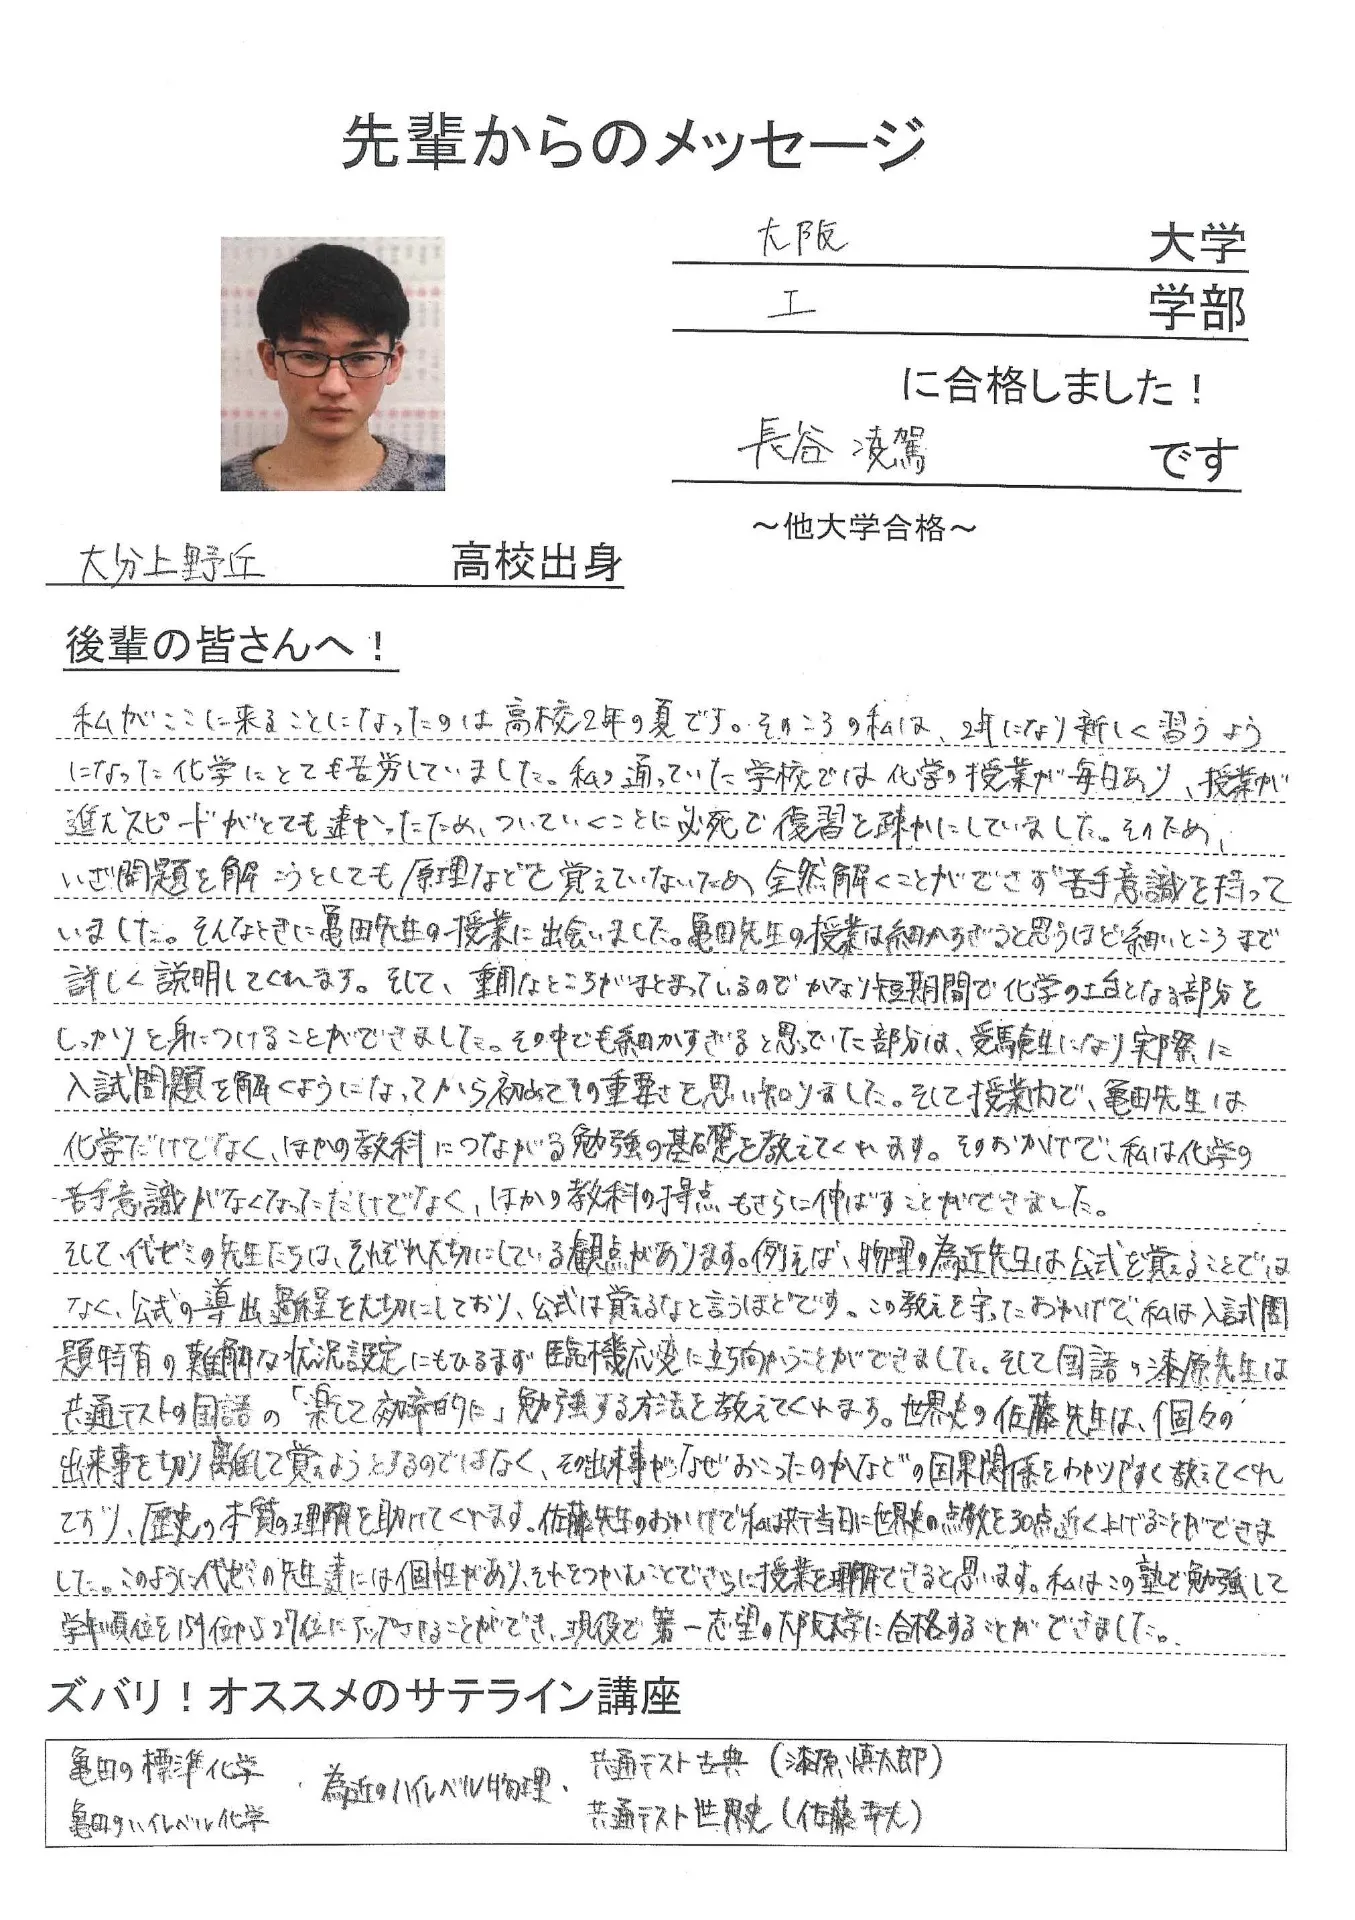 先輩からのメッセージ
大阪 大学
工 学部
に合格しました！
長谷 凌駕 です
～他大学合格～
大分上野丘 高校出身
後輩の皆さんへ！
私がここに来ることになったのは高校2年の夏です。そのころの私は、2年になり新しく習うよう
になった化学にとても苦労していました。私の通っていた学校では化学の授業が毎日あり、授業が
進むスピードがとても速かったため、ついていくことに必死で復習を疎かにしていました。そのため、
いざ問題を解こうとしても原理などを覚えていないため、全然解くことができず苦手意識を持って
いました。そんなときに亀田先生の授業に出会いました。亀田先生の授業は細かすぎると思うほど細いところまで
詳しく説明してくれます。そして、重用なところがまとまっているのでかなり短期間で化学の土台となる部分を
しっかりと身につけることができました。その中でも細かすぎると思っていた部分は、受験生になり実際に
入試問題を解くようになってから初めてその重要さを思い知りました。そして授業内で、亀田先生は
化学だけでなく、ほかの教科につながる勉強の基礎を教えてくれます。そのおかげで、私は化学の
苦手意識がなくなっただけでなく、ほかの教科の得点もさらに伸ばすことができました。
そして、代ゼミの先生たちは、それぞれ大切にしている観点があります。例えば、物理の為近先生は公式を覚えることでは
なく、公式の導出過程を大切にしており、公式は覚えるなと言うほどです。この教えを守ったおかげで、私は入試問
題特有の難解な状況設定にもひるまず臨機応変に立ち向かうことができました。そして国語の漆原先生は
共通テストの国語の「楽して効率的に」勉強する方法を教えてくれます。世界史の佐藤先生は、個々の
出来事を切り離して覚えようとするのではなく、その出来事がなぜおこったのかなどの因果関係をわかりやすく教えてくれ
ており、歴史の本質の理解を助けてくれます。佐藤先生のおかげで私は共テ当日に世界史の点数を30点近く上げることができま
した。このように代ゼミの先生達には個性があり、それをつかむことでさらに授業を理解できると思います。私はこの塾で勉強して
学年順位を154位から27位にアップさせることができ、現役で第一志望の大阪大学に合格することができました。
ズバリ！オススメのサテライン講座
亀田の標準化学 ・為近のハイレベル物理・ 共通テスト古典（漆原慎太郎）
亀田のハイレベル化学 共通テスト世界史（佐藤幸夫）